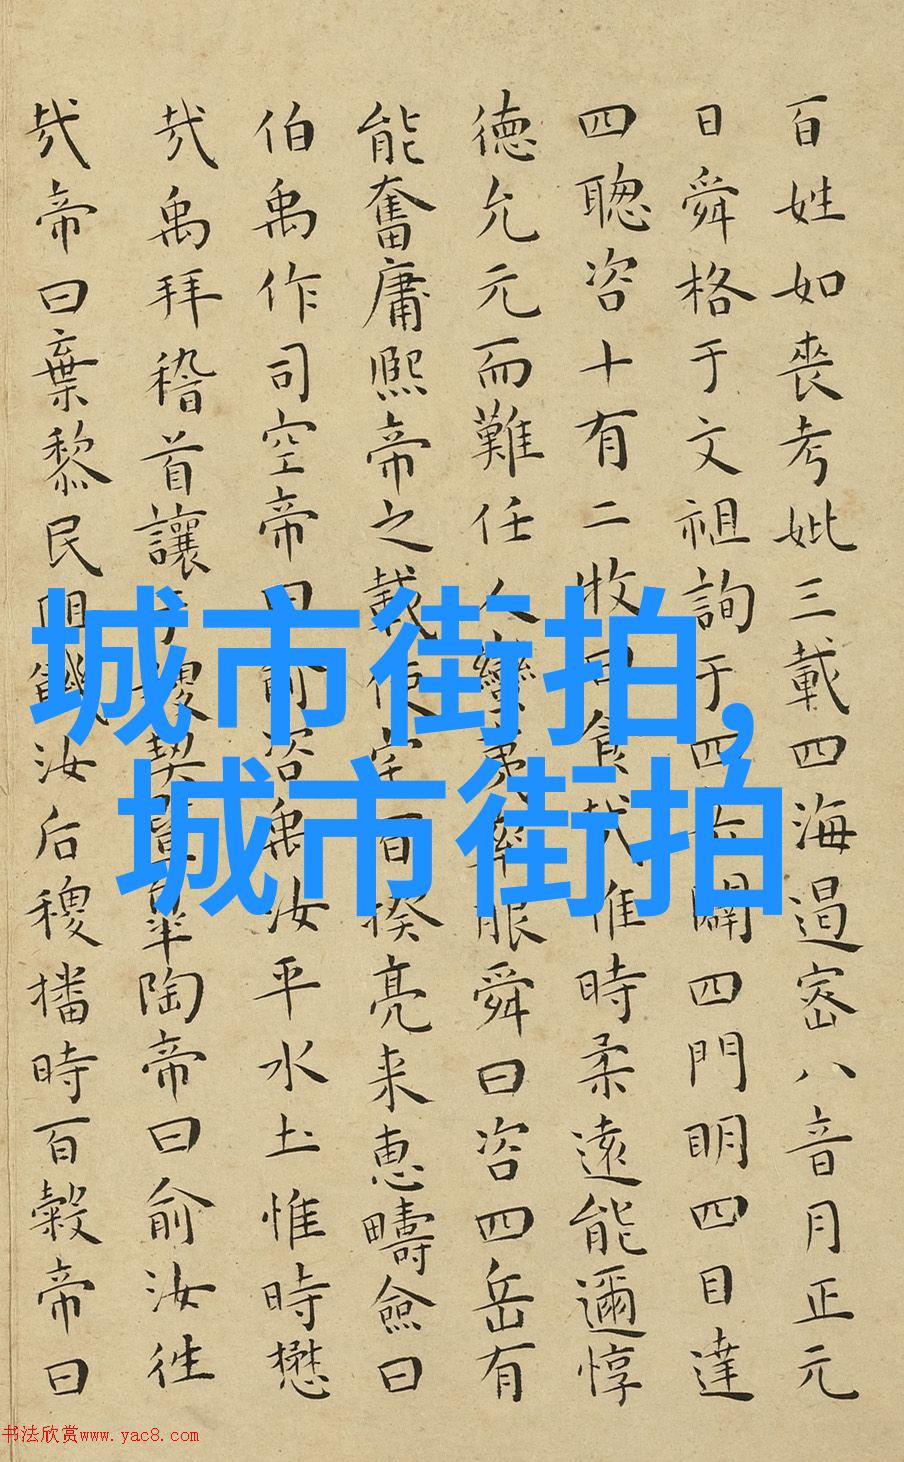 百姓如喪考妣三載四海遏密八音月正元
日舜格于文祖詢于四岳闢四門明四目達
四聰咨十有二牧曰食哉惟時柔遠能邇惇
徳允元而難任人蠻夷率服舜曰咨四岳有
能奮庸熙帝之載使宅百揆亮采惠疇僉曰
伯禹作司空帝曰俞咨禹汝平水土惟時懋
哉禹拜稽首讓于稷契暨皋陶帝曰俞汝往
哉帝曰棄黎民阻飢汝后稷播時百穀帝曰
城市街拍,
城市街拍
书法欣赏www.yac8.com